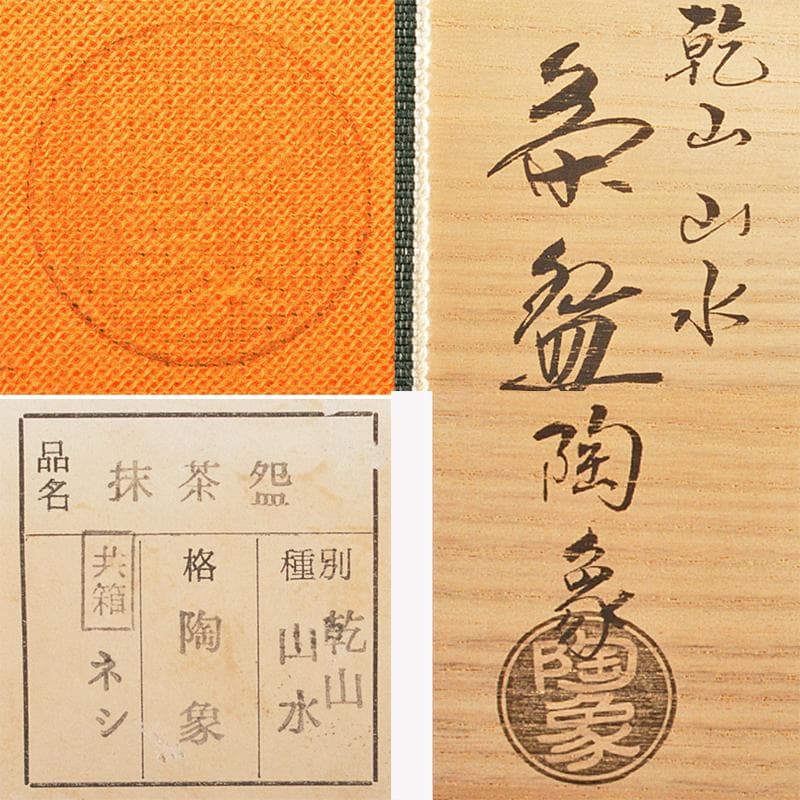 乾山山水
茶盌陶象
陶象
品名
抹茶盌
種別
乾山
山水
格
陶象
共箱
ネシ